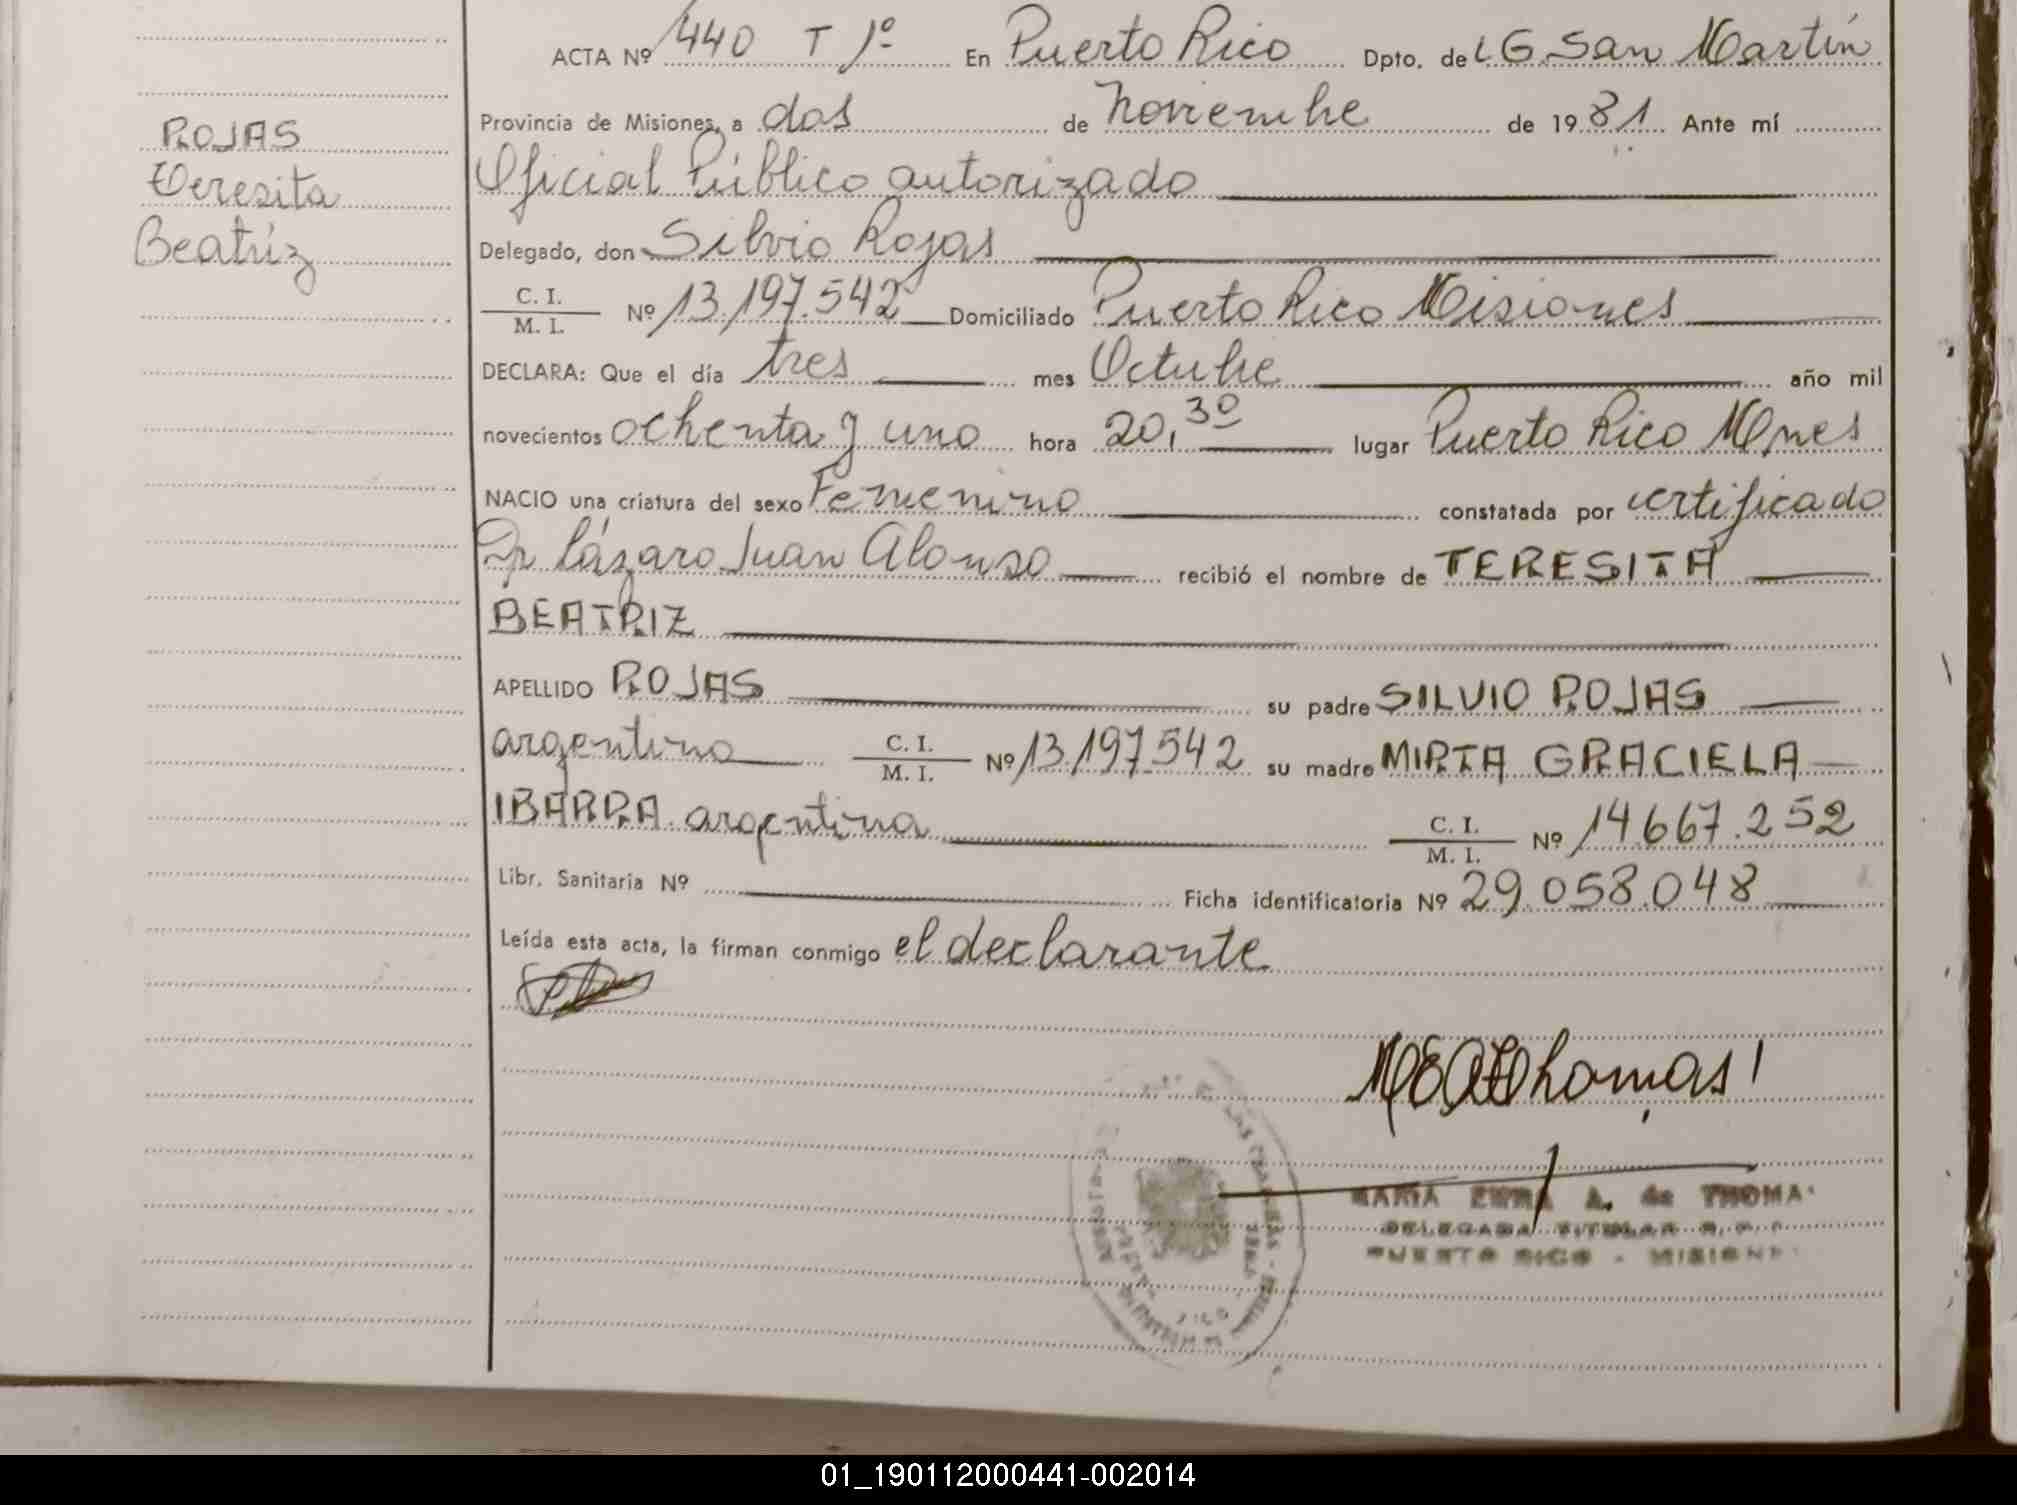 ACTA Nº 440 T 1º En Puerto Rico Dpto. de L G San Martín
Provincia de Misiones, a dos de Noviembre de 1981 Ante mí
Oficial Público autorizado
Delegado, don Silvio Rojas
C. I. / M. I. Nº 13.197.542 Domiciliado Puerto Rico Misiones
DECLARA: Que el día tres mes Octubre año mil
novecientos ochenta y uno hora 20,30 lugar Puerto Rico Mnes
NACIO una criatura del sexo Femenino constatada por certificado
Dr Lázaro Juan Alonso recibió el nombre de TERESITA
BEATRIZ
APELLIDO ROJAS su padre SILVIO ROJAS
argentino C. I. / M. I. Nº 13.197.542 su madre MIRTA GRACIELA
IBARRA argentina C. I. / M. I. Nº 14.667.252
Libr. Sanitaria Nº Ficha identificatoria Nº 29.058.048
Leída esta acta, la firman conmigo el declarante
ROJAS
Teresita
Beatríz
MARIA EMMA A. de THOMA
DELEGADA TITULAR R. P.
PUERTO RICO - MISIONE
01_190112000441-002014